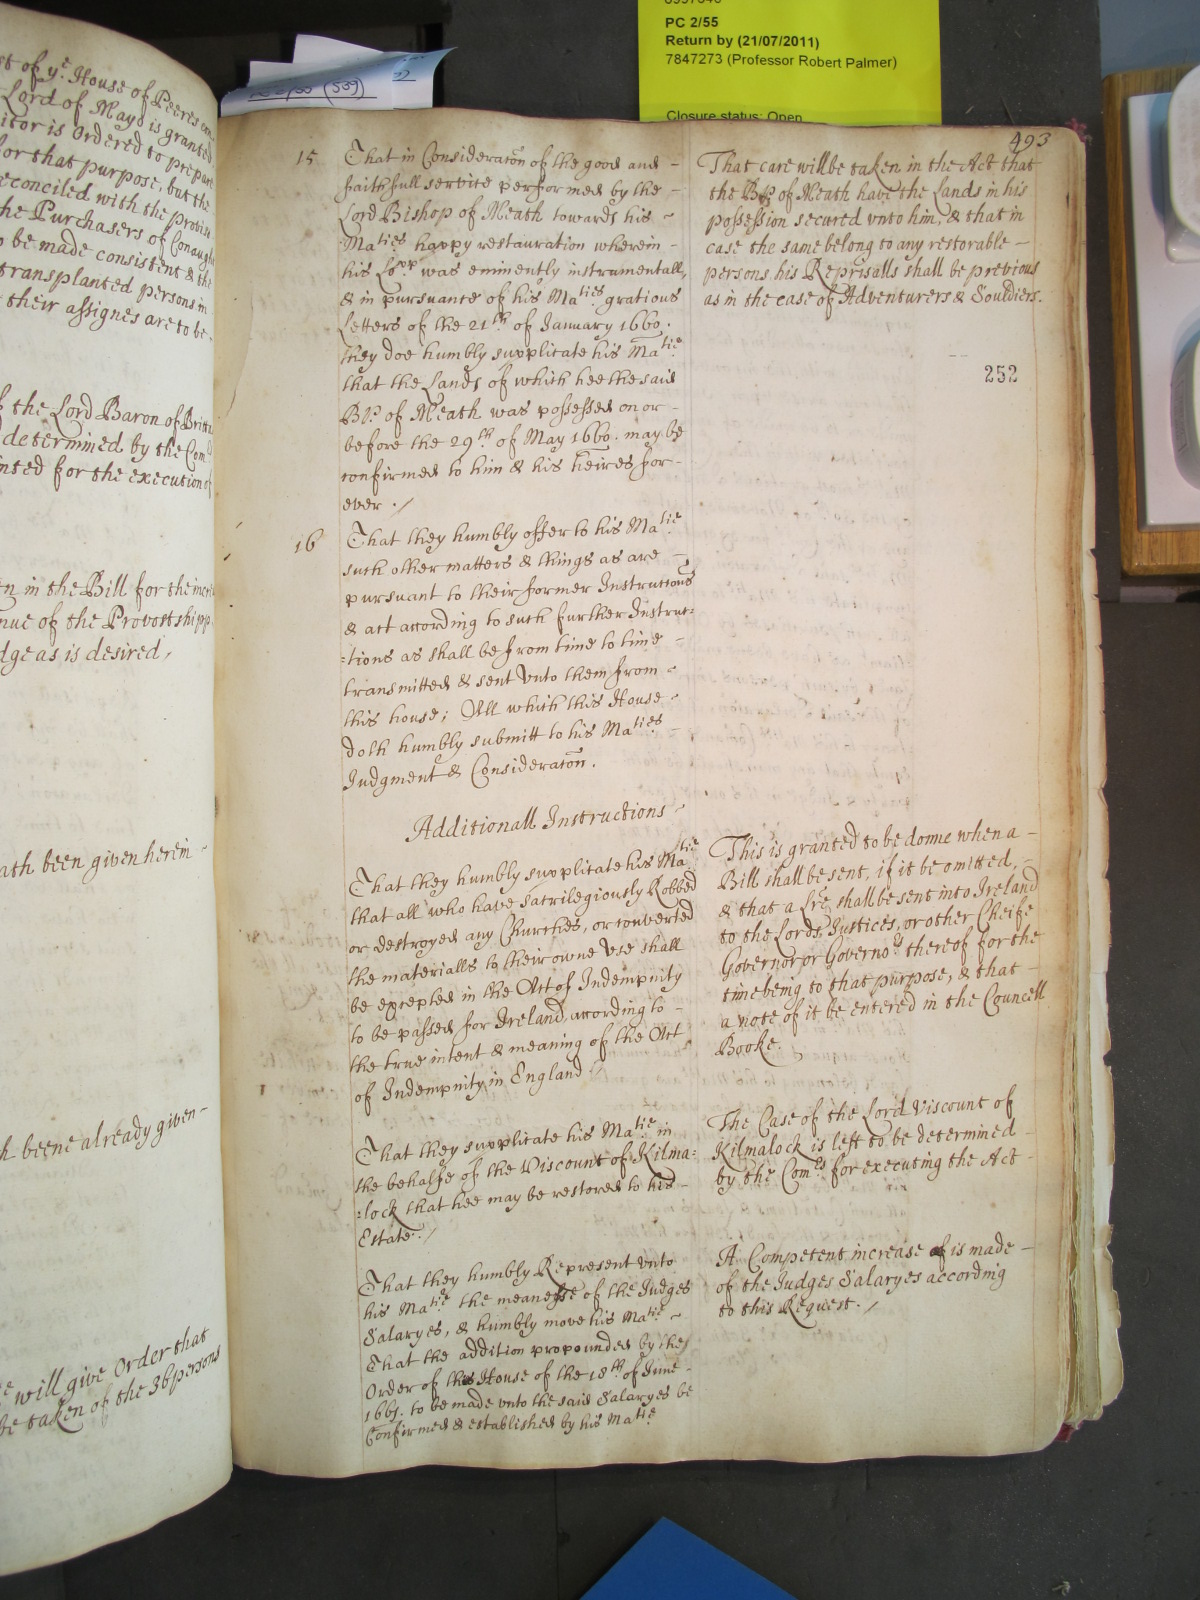 PC 2/55
Return by (21/07/2011)
7847273 (Professor Robert Palmer)
Closure status: Open
(539)
of yᵉ House of Peeres
Lord of Mayo is granted
itor is Ordered to prepare
for that purpose, but the
reconciled with the proviso
the Purchasers of Conaught
be made consistent & the
transplanted persons in
their assignes are to be
the Lord Baron of
determined by the Com
inted for the execution of
in the Bill for the
nue of the Provostshipp
dge as is desired,
ath been given herein
h beene already given
will give Order that
be taken of the 36 persons
493
15
That in Consideraton of the good and
faithfull service performed by the
Lord Bishop of Meath towards his
Maᵗⁱᵉˢ happy restauration wherein
his Loᵖᵖ was eminently instrumentall,
& in pursuance of his Maᵗⁱᵉˢ gratious
Letters of the 21ᵗʰ of January 1660.
they doe humbly supplicate his Maᵗⁱᵉ
that the Lands of which hee the said
Bᵖ. of Meath was possessed on or
before the 29ᵗʰ of May 1660. may be
confirmed to him & his heires for
ever ./
16
That they humbly offer to his Maᵗⁱᵉ
such other matters & things as are
pursuant to their former Instructions
& act according to such further Instruc=
:tions as shall be from time to time
transmitted & sent vnto them from
this house; All which this House
doth humbly submitt to his Maᵗⁱᵉˢ
Judgment & Consideraton.
Additionall Instructions
That they humbly supplicate his Maᵗⁱᵉ
that all who have sacrilegiously Robbed
or destroyed any Churches, or converted
the materialls to their owne Vse shall
be excepted in the Act of Indempnity
to be passed for Ireland, according to
the true intent & meaning of the Act
of Indempnity in England
That they supplicate his Maᵗⁱᵉ in
the behalfe of the Viscount of Kilma:
:lock that hee may be restored to his
Estate ./
That they humbly Represent vnto
his Maᵗⁱᵉ the meanesse of the Judges
Salaryes, & humbly move his Maᵗⁱᵉ
That the addition propounded by the
Order of this House of the 18ᵗʰ of June
1661. to be made vnto the said Salaryes be
Confirmed & established by his Maᵗⁱᵉ
That care will be taken in the Act that
the Bᵖ of Meath have the Lands in his
possession secured vnto him, & that in
case the same belong to any restorable
persons his Reprisalls shall be previous
as in the case of Adventurers & Souldiers.
252
This is granted to be donne when a
Bill shall be sent, if it be omitted,
& that a Lrē shall be sent into Ireland
to the Lords Justices, or other Cheife
Governor or Governoʳˢ thereof for the
time being to that purpose, & that
a note of it be entered in the Councell
Booke.
The Case of the Lord Viscount of
Kilmalock is left to be determined
by the Comʳˢ for executing the Act
A Competent increase is made
of the Judges Salaryes according
to this Request ./